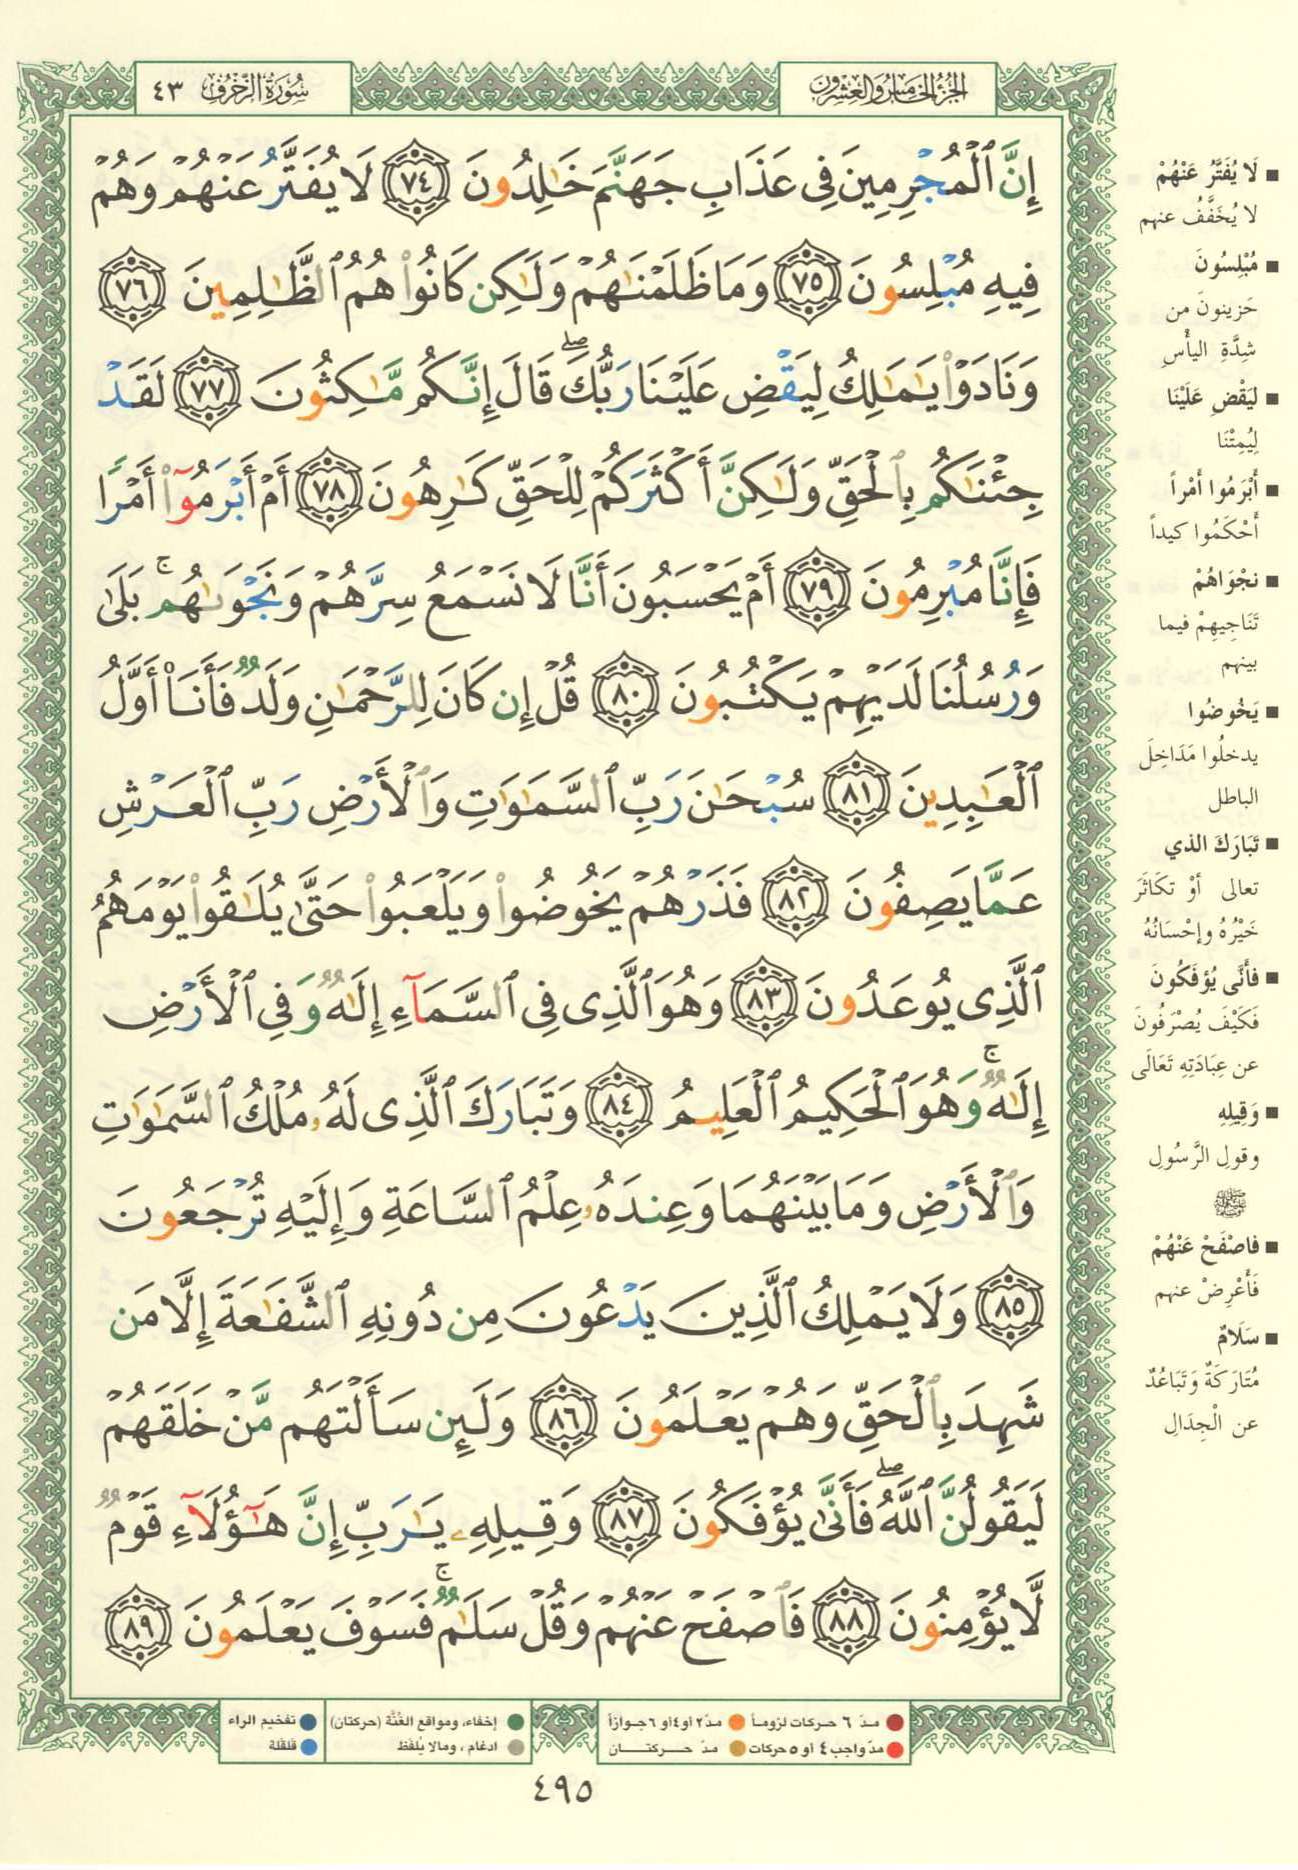 الجزء الخامس والعشرون
سورة الزخرف ٤٣
إِنَّ ٱلْمُجْرِمِينَ فِى عَذَابِ جَهَنَّمَ خَٰلِدُونَ ٧٤ لَا يُفَتَّرُ عَنْهُمْ وَهُمْ
فِيهِ مُبْلِسُونَ ٧٥ وَمَا ظَلَمْنَٰهُمْ وَلَٰكِن كَانُوا۟ هُمُ ٱلظَّٰلِمِينَ ٧٦
وَنَادَوْا۟ يَٰمَٰلِكُ لِيَقْضِ عَلَيْنَا رَبُّكَ ۖ قَالَ إِنَّكُم مَّٰكِثُونَ ٧٧ لَقَدْ
جِئْنَٰكُم بِٱلْحَقِّ وَلَٰكِنَّ أَكْثَرَكُمْ لِلْحَقِّ كَٰرِهُونَ ٧٨ أَمْ أَبْرَمُوٓا۟ أَمْرًا
فَإِنَّا مُبْرِمُونَ ٧٩ أَمْ يَحْسَبُونَ أَنَّا لَا نَسْمَعُ سِرَّهُمْ وَنَجْوَىٰهُم ۚ بَلَىٰ
وَرُسُلُنَا لَدَيْهِمْ يَكْتُبُونَ ٨٠ قُلْ إِن كَانَ لِلرَّحْمَٰنِ وَلَدٌ فَأَنَا۠ أَوَّلُ
ٱلْعَٰبِدِينَ ٨١ سُبْحَٰنَ رَبِّ ٱلسَّمَٰوَٰتِ وَٱلْأَرْضِ رَبِّ ٱلْعَرْشِ
عَمَّا يَصِفُونَ ٨٢ فَذَرْهُمْ يَخُوضُوا۟ وَيَلْعَبُوا۟ حَتَّىٰ يُلَٰقُوا۟ يَوْمَهُمُ
ٱلَّذِى يُوعَدُونَ ٨٣ وَهُوَ ٱلَّذِى فِى ٱلسَّمَآءِ إِلَٰهٌ وَفِى ٱلْأَرْضِ
إِلَٰهٌ ۚ وَهُوَ ٱلْحَكِيمُ ٱلْعَلِيمُ ٨٤ وَتَبَارَكَ ٱلَّذِى لَهُۥ مُلْكُ ٱلسَّمَٰوَٰتِ
وَٱلْأَرْضِ وَمَا بَيْنَهُمَا وَعِندَهُۥ عِلْمُ ٱلسَّاعَةِ وَإِلَيْهِ تُرْجَعُونَ
٨٥ وَلَا يَمْلِكُ ٱلَّذِينَ يَدْعُونَ مِن دُونِهِ ٱلشَّفَٰعَةَ إِلَّا مَن
شَهِدَ بِٱلْحَقِّ وَهُمْ يَعْلَمُونَ ٨٦ وَلَئِن سَأَلْتَهُم مَّنْ خَلَقَهُمْ
لَيَقُولُنَّ ٱللَّهُ ۖ فَأَنَّىٰ يُؤْفَكُونَ ٨٧ وَقِيلِهِۦ يَٰرَبِّ إِنَّ هَٰٓؤُلَآءِ قَوْمٌ
لَّا يُؤْمِنُونَ ٨٨ فَٱصْفَحْ عَنْهُمْ وَقُلْ سَلَٰمٌ ۚ فَسَوْفَ يَعْلَمُونَ ٨٩
■ لَا يُفَتَّرُ عَنْهُمْ
لا يُخَفَّفُ عنهم
■ مُبْلِسُونَ
حَزينونَ من
شِدَّةِ اليأْسِ
■ لِيَقْضِ عَلَيْنَا
لِيُمِتْنَا
■ أَبْرَمُوا أمْراً
أَحْكَمُوا كيداً
■ نجْوَاهُمْ
تَنَاجِيهِمْ فيما
بينهم
■ يَخُوضُوا
يدخلُوا مَدَاخِلَ
الباطل
■ تَبَارَكَ الذي
تعالى أوْ تكَاثَرَ
خَيْرُهُ وإحْسَانُهُ
■ فأَنَّى يُؤفَكُونَ
فَكَيْفَ يُصْرَفُونَ
عن عِبَادَتِهِ تَعَالَى
■ وَقِيلِهِ
وقولِ الرَّسُولِ
ﷺ
■ فاصْفَحْ عَنْهُمْ
فَأَعْرِضْ عنهم
■ سَلَامٌ
مُتَارَكَةٌ وَتَبَاعُدٌ
عن الْجِدَالِ
مدّ ٦ حركات لزوماً مدّ ٢ أو ٤ أو ٦ جوازاً
مدّ واجب ٤ أو ٥ حركات مدّ حركتان
إخفاء، ومواقع الغُنَّة (حركتان) تفخيم الراء
ادغام، ومالا يُلفَظ قلقلة
٤٩٥